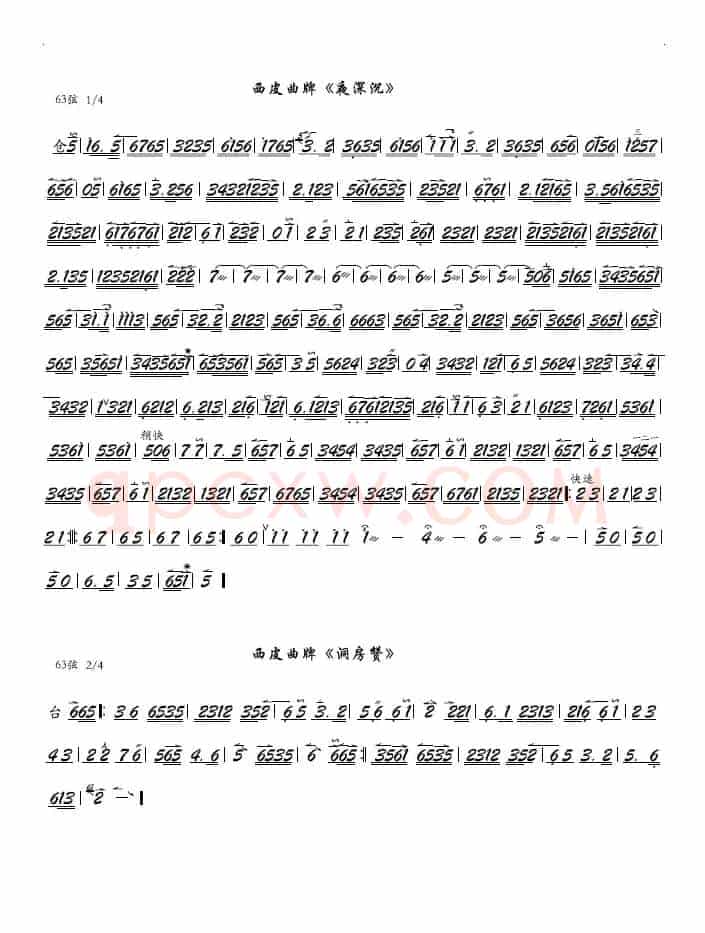 西皮曲牌《夜深沉》
63弦 1/4
仓5| 16. 5| 6765| 3235| 6156| 1765| 3. 2| 3635| 6156| 111| 3. 2| 3635| 656| 0156| 1257|
656| 05| 6165| 3.256| 34321235| 2.123| 5616535| 23521| 6761| 2.12165| 3.5616535|
213521| 6176761| 212 61| 232| 01| 23| 21| 235| 261| 2321| 2321| 21352161| 21352161|
2.135| 12352161| 222| 7| 7| 7| 7| 6| 6| 6| 6| 5| 5| 5| 506| 5165| 3435651|
565| 31.1| 1113| 565| 32.2| 2123| 565| 36.6| 6663| 565| 32.2| 2123| 565| 3656| 3651| 653|
565| 35651| 3435651| 653561| 565| 35| 5624| 323| 04| 3432| 121| 65| 5624| 323| 34.4|
3432| 1321| 6212| 6.213| 216| 121| 6.1213| 67612135| 216| 11| 63| 21| 6123| 7261| 5361|
稍快
5361| 5361| 506| 77| 7. 5| 657| 65| 3454| 3435| 657| 61| 2132| 1321| 657| 65| 3454|
快速
3435| 657| 61| 2132| 1321| 657| 6765| 3454| 3435| 657| 6761| 2135| 2321|: 23| 21| 23|
21:| 67| 65| 67| 65:| 60| 11| 11| 11| 1 — | 4 — | 6 — | 5 — | 50| 50|
50| 6. 5| 35| 651| 5|
西皮曲牌《洞房赞》
63弦 2/4
台 665|: 36 6535| 2312 352| 65 3. 2| 56 61| 2 221| 6. 1 2313| 216 61| 23
43| 22 76| 565 4. 6| 5 6535| 6 665:| 3561 6535| 2312 352| 65 3. 2| 5. 6
613| 2 — |
qpcxw.COM